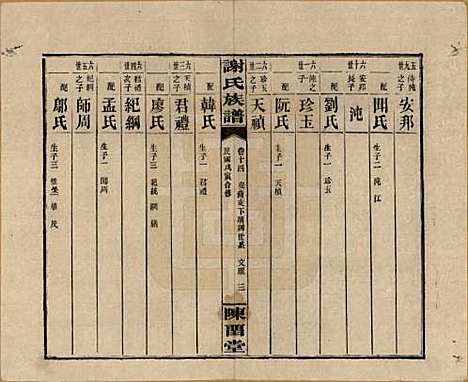 五九世 侍沌之子 安邦
配 閗氏 生子二 沌 江
六十世 安邦長子 沌
配 劉氏 生子一 珍玉
六一世 沌之子 珍玉
配 阮氏 生子一 天禎
六二世 珍玉之子 天禎
謝氏族譜
卷十四
民國戊寅合修
文耀 三
陳留堂
配 韓氏 生子一 君禮
六三世 天禎之子 君禮
配 廖氏 生子三 紀綱
六四世 君禮次子 紀綱
配 孟氏 生子一 師周
六五世 紀綱之子 師周
配 鄢氏 生子三